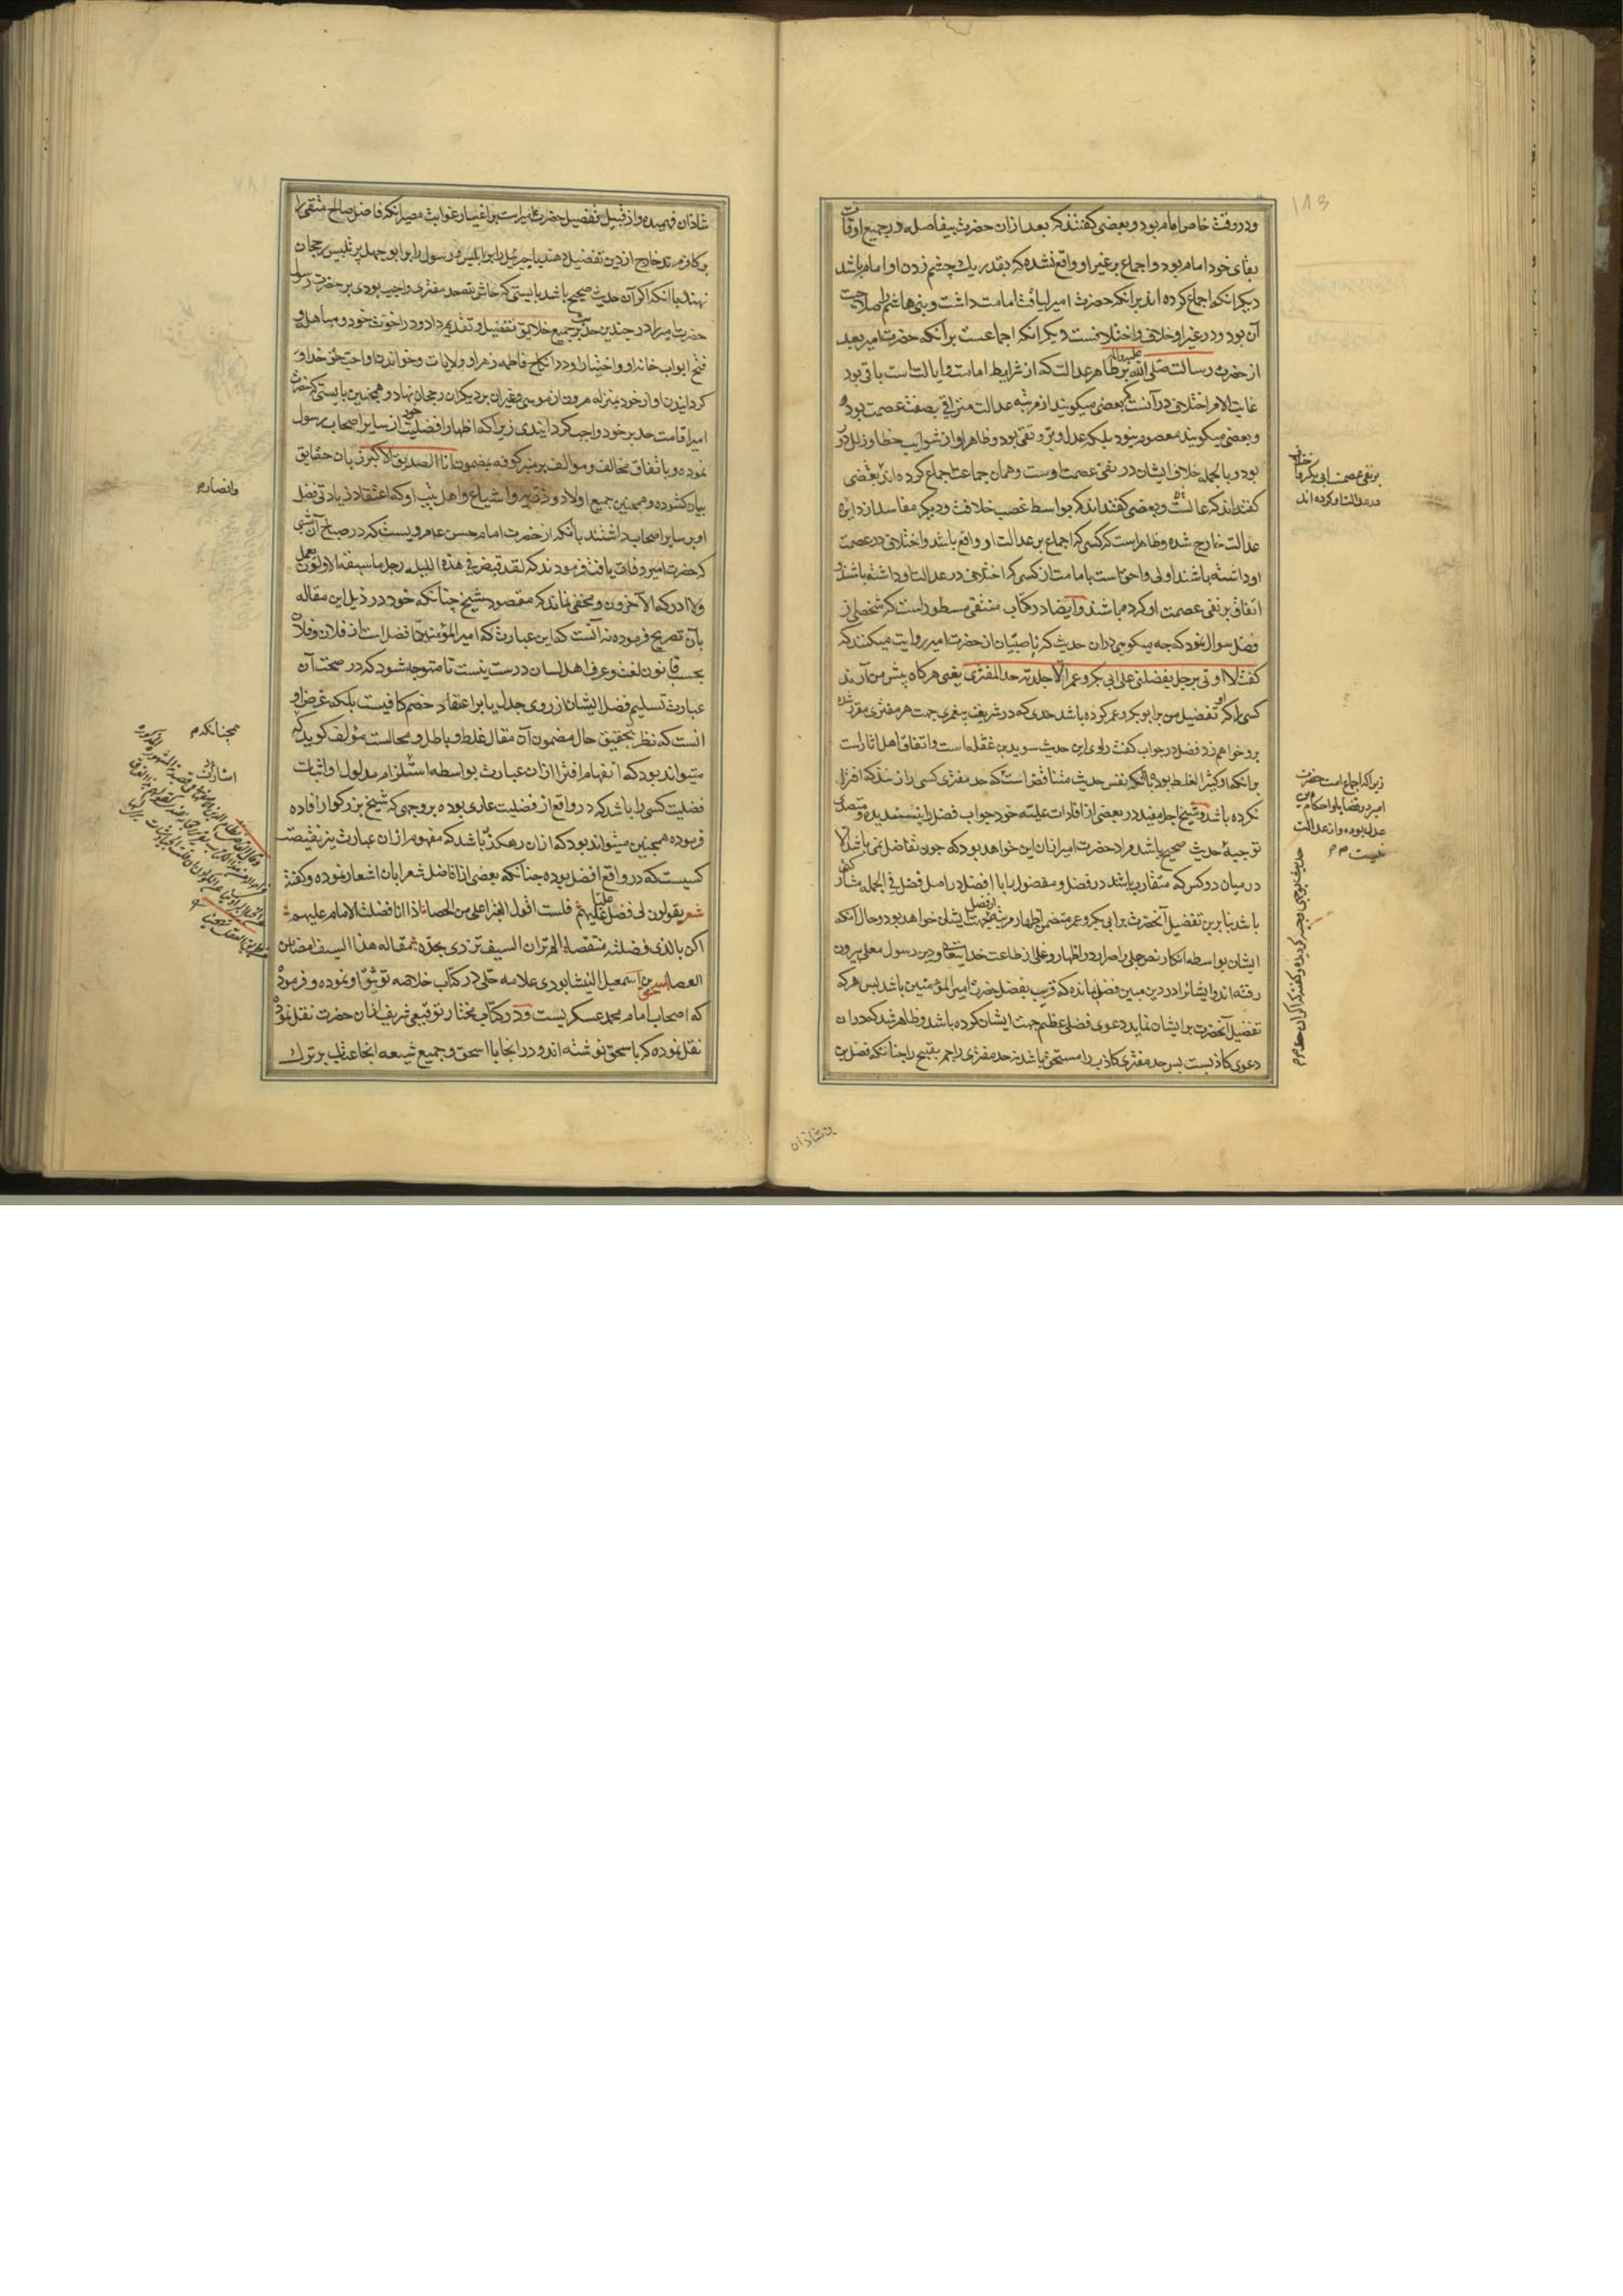 ودر وقت خاص امام بود و بعضی گفتند که بعد از ان حضرت بیفاصله و در جمیع اوقات
بقای خود امام بود و اجماع بر غیر او واقع نشده که بقدر یک چشم زدن او امام باشد
دیگر انکه اجماع کرده اند بر انکه حضرت امیر لیاقت امامت داشت و بنی هاشم را صلاحیت
آن بود و در غیر او خلاف و اختلافست دیگر انکه اجماعست بر آنکه حضرت امیر بعد
از حضرت رسالت صلی الله علیه واله بر ظاهر عدالت که از شرایط امامت و ایالت است باقی بود
غایت الامر اختلافی در آنست که بعضی میگویند از مرتبه عدالت مترقی بصفت عصمت بود
و بعضی میگویند معصوم نبود بلکه عدل و بر و تقی بود و ظاهر او از شوایب خطا و زلل
بود و بالجمله خلاف ایشان در نفی عصمت اوست و همان جماعت اجماع کرده اند بعضی
گفته اند که عدالت و بعضی گفته اند که بواسطه غصب خلافت و دیگر مفاسد از دایره
عدالت خارج شده و ظاهر است که کسی که اجماع بر عدالت او واقع باشد و اختلافی در عصمت
او داشته باشند اولی و احق است بامامت از کسی که اختلافی در عدالت او داشته باشند و
اتفاق بر نفی عصمت او کرده باشند و ایضا در کتاب منتقی مسطور است که شخصی از
فضل سوال نمود که چه میگویی در ان حدیث که ناصبیان از حضرت امیر روایت میکنند که
گفت لا اوتی برجل یفضلنی علی ابی بکر و عمر الا جلدته حد المفتری یعنی هرگاه پیش من آرند
کسی را که او تفضیل من بر ابو بکر و عمر کرده باشد حدی که در شریعت پیغمبری جهت هر مفتری مقرر شده
برو خواهم زد فضل در جواب گفت راوی این حدیث سوید بن غفله است و اتفاق اهل اثار است
بر انکه او کثیر الغلط بود با آنکه نفس حدیث متناقض است که حد مفتری کسی را نزنند که افترا
نکرده باشد و شیخ اجل مفید در بعضی از افادات علیه خود جواب فضل را پسندیده و متصدی
توجیه حدیث صحیح باشد مراد حضرت امیر از ان این خواهد بود که چون تفاضل نمی باشد الا
در میان دو کس که متقارب باشند در فضل و مفضول را با افضل در اصل فضل فی الجمله مشارکتی
باشد بنابرین تفضیل آنحضرت بر ابی بکر و عمر متضمن اظهار مرتبه فضل جهت ایشان خواهد بود و حال آنکه
ایشان بواسطه انکار نص جلی و اصرار در اظهار و غلی از طاعت خدایتعالی و دین رسول معلی بیرون
رفته اند و ایشانرا در دین مبین فضلی نمانده که قریب بفضل حضرت امیر المؤمنین باشد پس هر که
تفضیل آنحضرت بر ایشان نماید دعوی فضلی عظیم جهت ایشان کرده باشد و ظاهر شد که در ان
دعوی کاذبست پس حد مفتری کاذب را مستحق باشد نه حد مفتری را جمر بقبیح را چنانکه فضل بن
بر نفی عصمت ابی بکر
در عدالت او کرده اند
زیرا که اجماع امت حضرت
امیر در قضایا و احکام
عدل بوده و از عدالت
نیست
بن شاذان
شاذان فهمیده و از قبیل تفضیل حضرت امیر است بر اغیار غوایت مصیر انکه فاضل صالح متقی را
بر کافر مرتد خارج از دین تفضیل دهند یا جبرئیل را بر ابلیس و رسول را بر ابو جهل پر تلبیس رجحان
نهند با انکه اگر آن حدیث صحیح باشد بایستی که حاش لله حد مفتری واجب بودی بر حضرت رسول
حضرت امیر را در چندین حدیث بر جمیع خلایق تفضیل و تقدیم داد و در اخوت خود و مباهله و
فتح ابواب خانه او و اختیار او در انکاح فاطمه زهرا و ولایات و خواندن او احب خلق خدا و
گردانیدن او از خود بمنزله هرون از موسی و غیر ان بر دیگران رجحان نهاد و همچنین بایستی که حضرت
امیر اقامت حد بر خود واجب گردانیدی زیرا که اظهار افضلیت خود از سایر اصحاب رسول
نموده و باتفاق مخالف و موالف بر منبر کوفه بمضمون انا الصدیق الاکبر زبان حقایق
بیان گشوده و همچنین جمیع اولاد و ذریه و اشیاع و اهل بیت او که اعتقاد زیادتی فضل
او بر سایر اصحاب داشتند با آنکه از حضرت امام حسن عم مرویست که در صباح آن شبی
که حضرت امیر وفات یافت فرمودند که لقد قبض فی هذه اللیله رجل ما سبقه الاولون بعمل
ولا ادرکه الآخرون و مخفی نماند که مقصود شیخ چنانکه خود در ذیل این مقاله
بآن تصریح فرموده نه آنست که این عبارت که امیر المؤمنین افضل است از فلان و فلان
بحسب قانون لغت و عرف اهل لسان درست نیست تا متوجه شود که در صحت آن
عبارت تسلیم فضل ایشان از روی جدل یا بر اعتقاد خصم کافیست بلکه غرض او
انست که نظر بتحقیق حال مضمون آن مقال غلط و باطل و محالست مؤلف گوید که
میتواند بود که انفهام افترا از ان عبارت بواسطه استلزام مدلول او اثبات
فضلیت کسی را باشد که در واقع از فضلیت عاری بوده بر وجهی که شیخ بزرگوار افاده
فرموده همچنین میتواند بود که از ان رهگذر باشد که مفهوم از ان عبارت بر تنقیصت
کسیست که در واقع افضل بوده چنانکه بعضی از افاضل شعرا بان اشعار نموده و گفته
شعر یقولون لی فضل علیا علیهم فلست اقول التبر اعلی من الحصا اذا انا فضلت الامام علیهم
اکن بالذی فضلته متنقصا الم تر ان السیف تزری بحده مقاله هذا السیف امضی من
العصا اسحق بن اسمعیل النیشابوری علامه حلی در کتاب خلاصه توثیق او نموده و فرموده
که اصحاب امام محمد عسکریست و در کتاب مختار توقیعی شریف از ان حضرت نقل نموده
نقل نموده که باسحق نوشته اند و در انجا با اسحق و جمیع شیعه انجا عتاب بر ترک
وانصار
چنانکه
اشارت